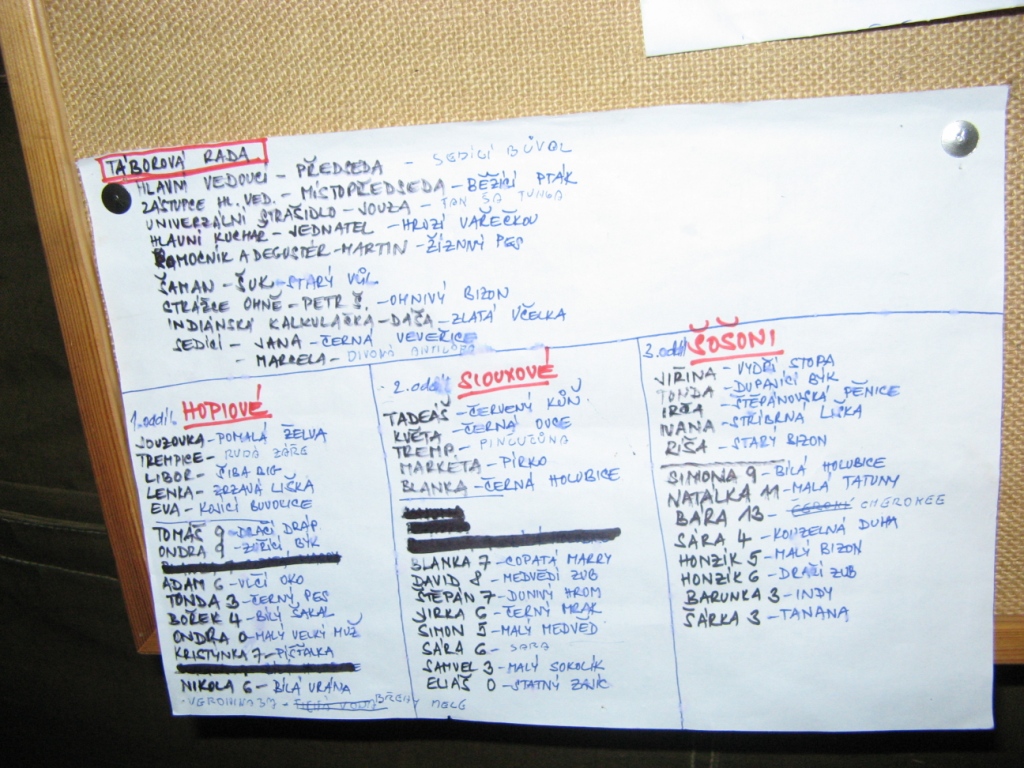 TÁBOROVÁ RADA
HLAVNÍ VEDOUCÍ - PŘEDSEDA - SEDÍCÍ BŮVOL
ZÁSTUPCE HL. VED. - MÍSTOPŘEDSEDA - BĚŽÍCÍ PTÁK
UNIVERZÁLNÍ STRAŠIDLO - JOUZA - TAN ŠA TUNGA
HLAVNÍ KUCHAŘ - JEDNATEL - HROZÍ VAŘEČKOU
POMOCNÍK A DEGUSTÉR - MARTIN - ŽÍZNIVÝ PES
ŠAMAN - ŠUK - STARÝ VŮL
STRÁŽCE OHNĚ - PETR Š. - OHNIVÝ BIZON
INDIÁNSKÁ KALKULAČKA - DÁŠA - ZLATÁ VČELKA
SEDÍCÍ - JANA - ČERNÁ VEVEŘICE
- MARCELA - DIVOKÁ ANTILOPA
1. oddíl HOPIOVÉ
JOUZOVKA - POMALÁ ŽELVA
TREMPICE - RUDÁ ZÁŘE
LIBOR - ŠIBA BIG
LENKA - ZRZAVÁ LIŠKA
EVA - KOJÍCÍ BUVOLICE
TOMÁŠ 9 - DRAČÍ DRÁP
ONDRA 9 - ZUŘÍCÍ BÝK
ADAM 6 - VLČÍ OKO
TONDA 3 - ČERNÝ PES
BOŘEK 4 - BÍLÝ ŠAKAL
ONDRA 0 - MALÝ VELKÝ MUŽ
KRISTÝNKA 7 - PÍŠŤALKA
NIKOLA 6 - BÍLÁ VRÁNA
2. oddíl SIOUXOVÉ
TADEÁŠ - ČERVENÝ KŮŇ
KVĚTA - ČERNÁ OVCE
TREMP -
MARKETA - PÍRKO
BLANKA - ČERNÁ HOLUBICE
BLANKA 7 - COPATÁ MARRY
DAVID 8 - MEDVĚDÍ ZUB
ŠTĚPÁN 7 - DUNIVÝ HROM
JIRKA 6 - ČERNÝ MRAK
ŠIMON 5 - MALÝ MEDVĚD
SÁRA 6 - SARA
SAMUEL 3 - MALÝ SOKOLÍK
ELIÁŠ 0 - STATNÝ ZAJÍC
3. oddíl ŠOŠONI
JIŘINA - VYDŘÍ STOPA
TONDA - DUPAJÍCÍ BÝK
IRČA - ŠTĚPÁNOVSKÁ PĚNICE
IVANA - STŘÍBRNÁ LIŠKA
RÍŠA - STARÝ BIZON
SIMONA 9 - BÍLÁ HOLUBICE
NATÁLKA 11 - MALÁ TATUNY
BÁRA 13 - CHEROKEE
SÁRA 4 - KOUZELNÁ DUHA
HONZÍK 5 - MALÝ BIZON
HONZÍK 6 - DRAČÍ ZUB
BARUNKA 3 - INDY
ŠÁRKA 3 - TANANA